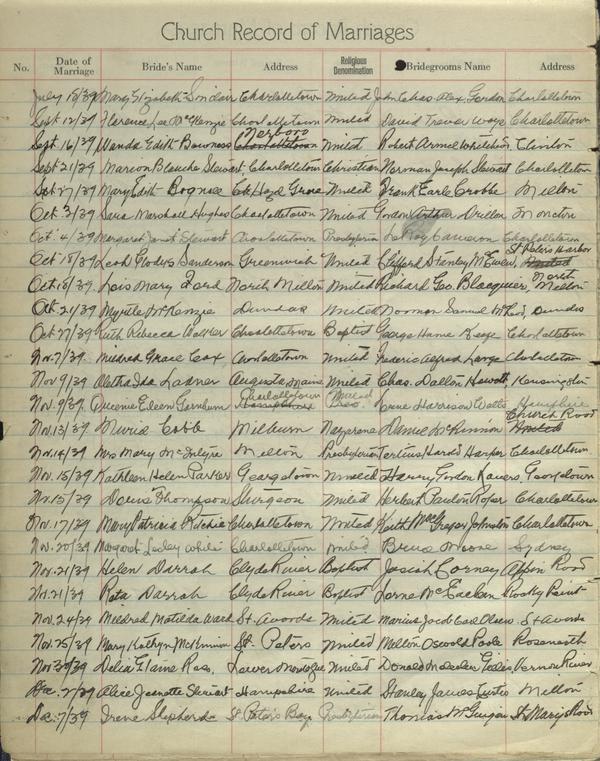 Church Record of Marriages
No. Date of Marriage Bride's Name Address Religious Denomination Bridegrooms Name Address
July 15/39 Mary Elizabeth Sinclair Charlottetown United John Chas. Alex. Gordon Charlottetown
Sept 12/39 Florence Lea McKenzie Charlottetown United David Trevor Ways Charlottetown
Sept. 16/39 Wanda Edith Bowness Charlottetown United Robert Clinton
Sept 21/39 Marion Blanche Stewart Charlottetown Christian Norman Joseph Stewart Charlottetown
Sept 27/39 Mary Edith Hazel Grove United Frank Earle Crabbe Milton
Oct 3/39 Marshall Hughes Charlottetown United Gordon Arthur Moncton
Oct. 4/39 Margaret Janet Stewart Charlottetown Presbyterian LeRoy Cameron Charlottetown
Oct 18/39 Leah Gladys Sanderson Greenwich United Clifford Stanley McEwen, St. Peters Harbor
Oct 18/39 Lois Mary Ford North Milton United Richard Geo. Blacquier, North Milton
Oct. 21/39 Myrtle McKenzie Dundas United Norman Samuel Dundas
Oct 27/39 Ruth Rebecca Walker Charlottetown Baptist George Charlottetown
Nov. 7/39. Mildred Grace Cox Charlottetown United Frederic Alfred Large Charlottetown
Nov 9/39 Ida Ladner Augusta Maine United Chas. Dallon Howatt Kensington
Nov. 9/39. Queenie Eileen Charlottetown United Harrison Watts Hampshire
Nov. 13/39 Murial Cobb Milburn Nazarene Daniel McKinnon Church Road
Nov. 14/39 Mrs Mary McIntyre Milton Presbyterian Tertius Harold Harper Charlottetown.
Nov. 15/39 Kathleen Helen Parker Georgetown United Harry Gordon Georgetown
Nov. 15/39 Doris Thompson Sturgeon United Herbert Charlottetown
Nov. 17/39 Mary Patricia Ritchie Charlottetown United Keith MacGregor Johnston Charlottetown
Nov. 20/39 Margaret Lesley White Charlottetown United Bruce Moore Sydney
Nov. 21/39 Helen Darrah Clyde River Baptist Josiah Corney Appin Road
Nov. 21/39 Rita Darrah Clyde River Baptist Lorne McEachern Rocky Point
Nov. 24/39 Mildred Matilda Ward St. Avards United Marius Jacob Carl Olsen St Avards
Nov. 25/39 Mary Kathryn McKinnon St. Peters United Melton Oswald Poole Roseneath
Nov 30/39 Delia Elaine Ross, Lower Montague United Donald Vernon River
Dec. 2/39 Alice Jeanette Stewart Hampshire United Stanley James Curtis Milton
Dec. 7/39 Irene Shepherd St Peters Bay Presbyterian Thomas McGuigan St. Marys Road